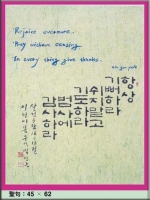 Rejoice evermore..
Pray without ceasing.
In every thing give thanks.
항상
기뻐하라
쉬지말고
기도하라
범사에
감사하라
聖句 : 45 × 62